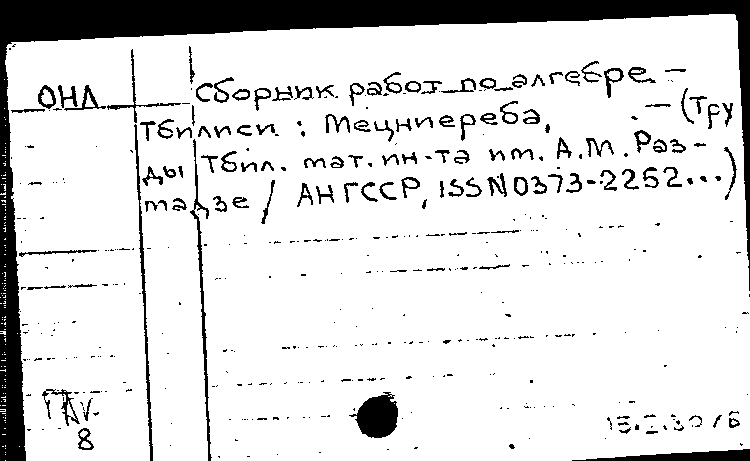 ОНЛ
Сборник работ по алгебре. –
Тбилиси : Мецниереба, . – (Тру
ды Тбил. мат. ин-та им. А.М. Раз-
мадзе / АН ГССР, ISSN 0373-2252...)
8